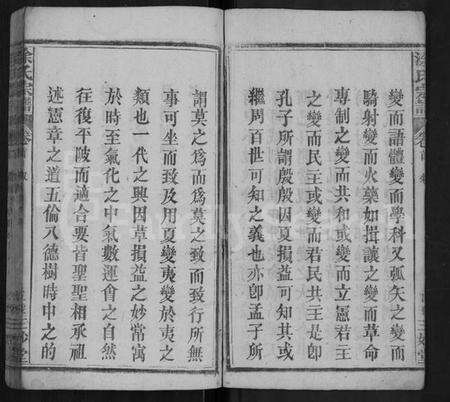 變而語體變而學科又弧矢之變而
騎射變而火藥如揖讓之變而革命
專制之變而共和或變而立憲君主
之變而民主或變而君民共主是卽
孔子所謂殷因夏損益可知其或
繼周百世可知之義也亦卽孟子所
謂莫之爲而爲莫之致而致行所無
事可坐而致及用夏變夷變於夷之
類也一代之興因革損益之妙常寓
於時至氣化之中氣數運會之自然
往復平陂而適合要皆聖聖相承祖
述憲章之道五倫八德樹時中之的